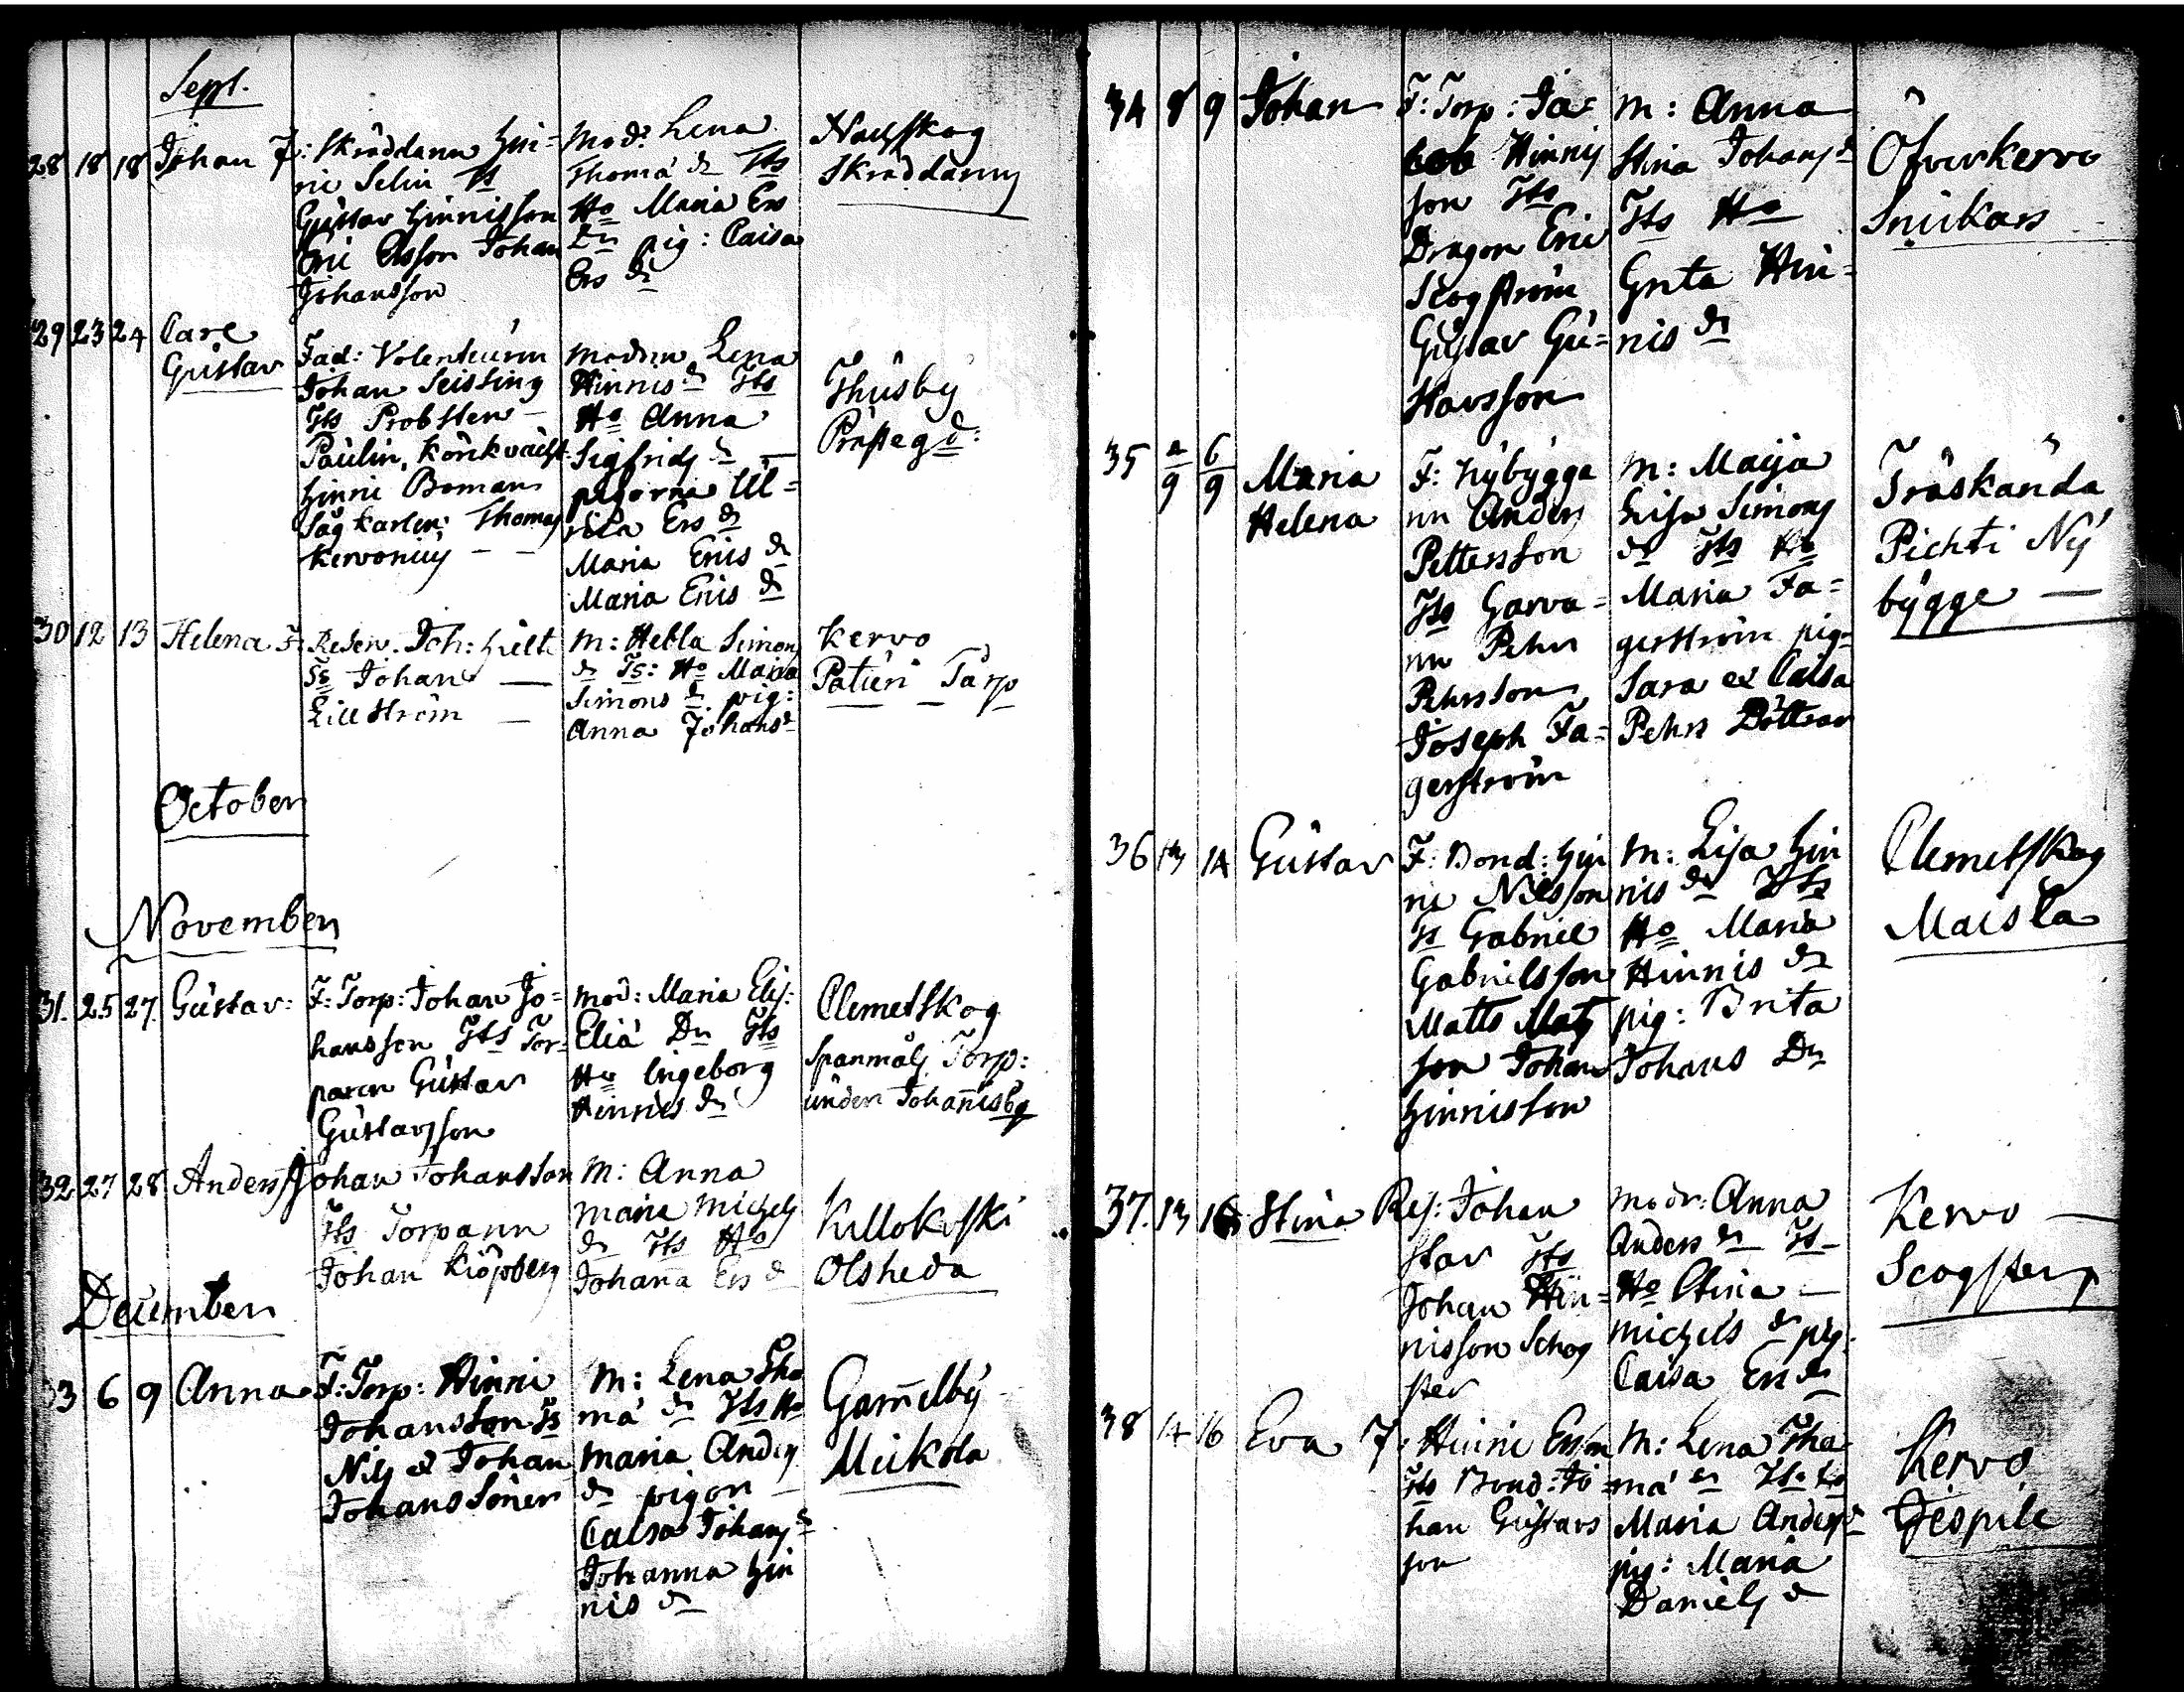 Sept.
28 18 18 Johan F: Skräddaren Hin=
ric Selin Ts
Gustav Hinricsson
Eric Ersson Johan
Johansson
Mod: Lena
Thomä dr Tts
Ho Maria Ers
Dr pig: Caisa
Ers dr
Skräddarns
29 23 24 Carl
Gustav
Fad: Volenteuren
Johan
Tts Probsten
Paulin,
Hinric Boman
Sågkarlen: Thomas
Kervonius
modren Lena
Hinrics dr Tts
Ho Anna
Sigfrids dr
pigorna Ul=
rica Ers dr
Maria Erics dr
Maria Erics dr
Thusby
Prästegd:
30 12 13 Helena F: Reserv. Joh: Hielt
Ts Johan
Lillström
M: Hebla Simons
dr Ts: Ho Maria
Simons dr pig:
Anna Johansd
Kervo
Paturi Torp
October
November
31. 25 27. Gustav: F: Torp: Johan Jo=
hansson Tts Tor=
paren Gustav
Gustavsson
Mod: Maria Elis:
Eliä Dr Tts
Ho Ingeborg
Hinrics dr
Clemetskog
Spanmäls Torp:
under Johannisbg
32 27 28 Anders Johan Johansson
Tts Torparen
Johan Kiöpberg
M: Anna
Maria Michels
dr Tts Ho
Johana Ers d
Kellokoski
Olsheda
December
33 6 9 Anna F: Torp: Hinric
Johansson Ts
Nils & Johan
Johans Söner
M: Lena Tho
mä dr Tts Ho
Maria Anders
dr pigor
Caisa Johans d
Johanna Hin
rics dr
Gam̄elby
Mickola
34 8 9 Johan F: Torp: Ja=
cob Hinrics
son Tts
Dragon Eric
Scogström
Gustav Gu=
stavsson
M: Anna
Stina Johans d
Tts Ho
Greta Hin=
rics dr
Öfverkervo
Snickars
35 2/9 6/9 Maria
Helena
F: Nybygga
ren Anders
Pettersson
Tts Garva=
ren Pehr
Pehrsson
Joseph Fa=
gerström
M: Maija
Lisa Simons
dr Tts Ho
Maria Fa=
gerström pig=
Sara & Caisa
Pehrs Döttrar
Träskända
Pichti Ny
bygge
36 13 14 Gustav F: Bond: Hin
ric Nilsson
Ts Gabriel
Gabrielsson
Matts Mats
son Johan
Hinricsson
M: Lisa Hin
rics dr Tts
Ho Maria
Hinrics dr
pig: Brita
Johans Dr
Clemetskog
Maisla
37. 13 16 Stina Res: Johan
Stav Tts
Johan Hin=
ricsson Schog
ster
Modr: Anna
Anders dr Tt
Ho Stina
Michels dr pig.
Caisa Ers dr
Kervo
Scogster
38 14 16 Eva F: Hinric Ersson
Tts Bond: Jo
han Gustavs
son
M: Lena Tho
mä dr Tts Ho
Maria Anders d
pig: Maria
Daniels d
Kervo
Jespile